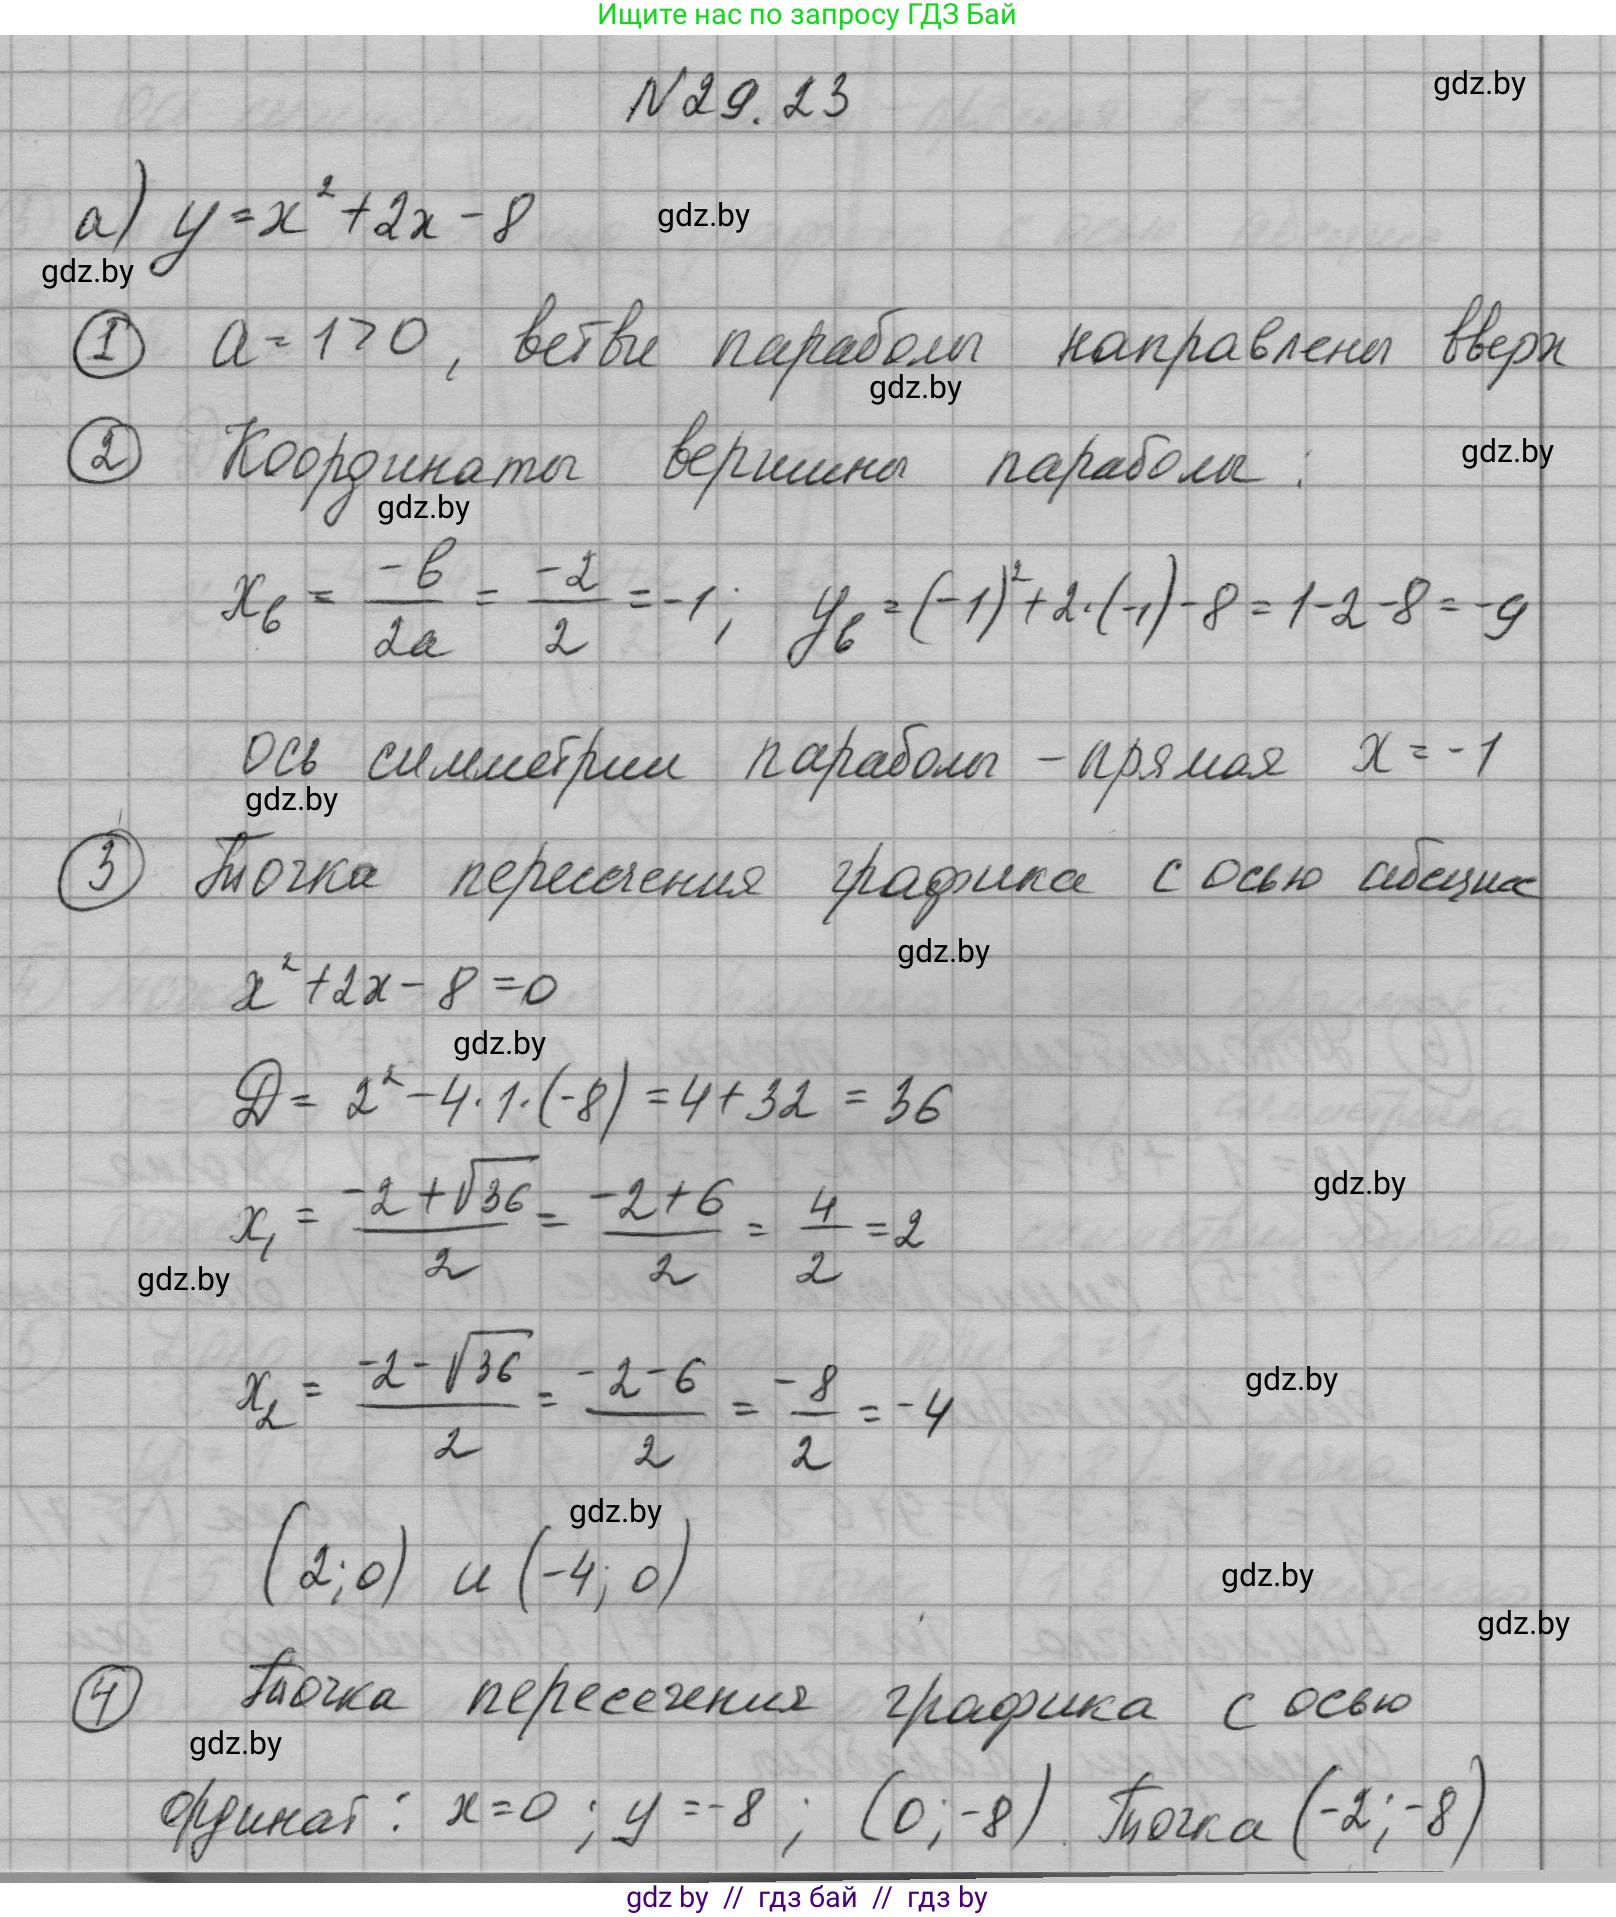 Ищите нас по запросу ГДЗ Бай
N 29.23
gdz.by
а) y = x² + 2x - 8
gdz.by
gdz.by
① a = 1 > 0, ветви параболы направлены вверх
gdz.by
② Координаты вершины параболы:
gdz.by
gdz.by
xв = -b/2a = -2/2 = -1; yв = (-1)² + 2·(-1) - 8 = 1 - 2 - 8 = -9
ось симметрии параболы - прямая x = -1
gdz.by
③ Точка пересечения графика с осью абсцисс
gdz.by
x² + 2x - 8 = 0
gdz.by
D = 2² - 4·1·(-8) = 4 + 32 = 36
gdz.by
x₁ = (-2 + √36)/2 = (-2 + 6)/2 = 4/2 = 2
gdz.by
x₂ = (-2 - √36)/2 = (-2 - 6)/2 = -8/2 = -4
gdz.by
gdz.by
(2; 0) и (-4; 0)
gdz.by
gdz.by
④ Точка пересечения графика с осью
gdz.by
ординат: x = 0; y = -8; (0; -8). Точка (-2; -8)
gdz by // гдз бай // гдз by